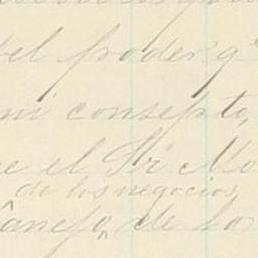 el poder qe
mi consepto,
e el Sr Mo
de los negocios
manejo, de los